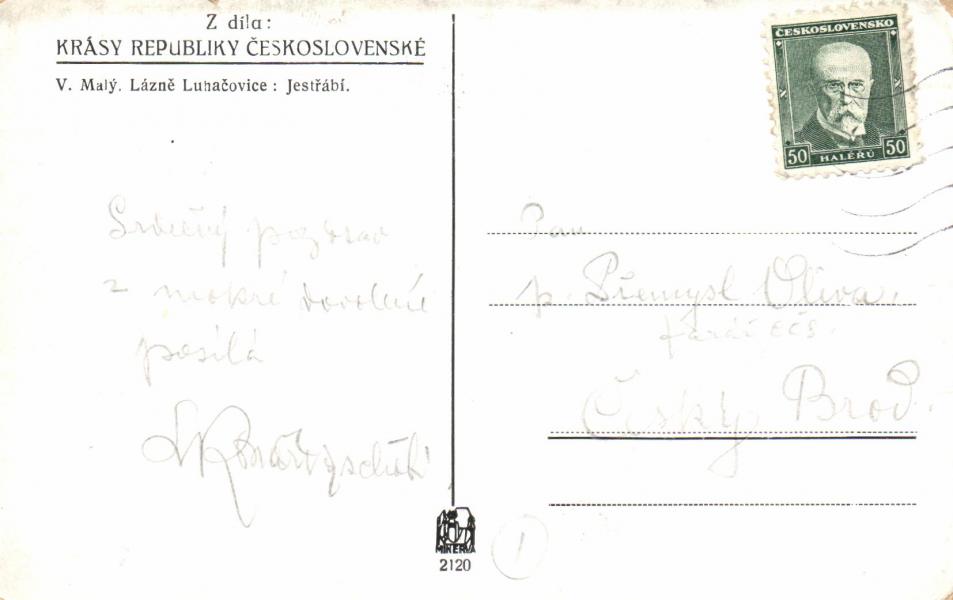 Z díla:
KRÁSY REPUBLIKY ČESKOSLOVENSKÉ
V. Malý. Lázně Luhačovice: Jestřábí.
ČESKOSLOVENSKO
50 HALÉŘŮ 50
Srdečný pozdrav
z mokré dovolené
posílá
Pan
p. Přemysl Oliva.
farář CČS.
Český Brod.
MINERVA
2120
1